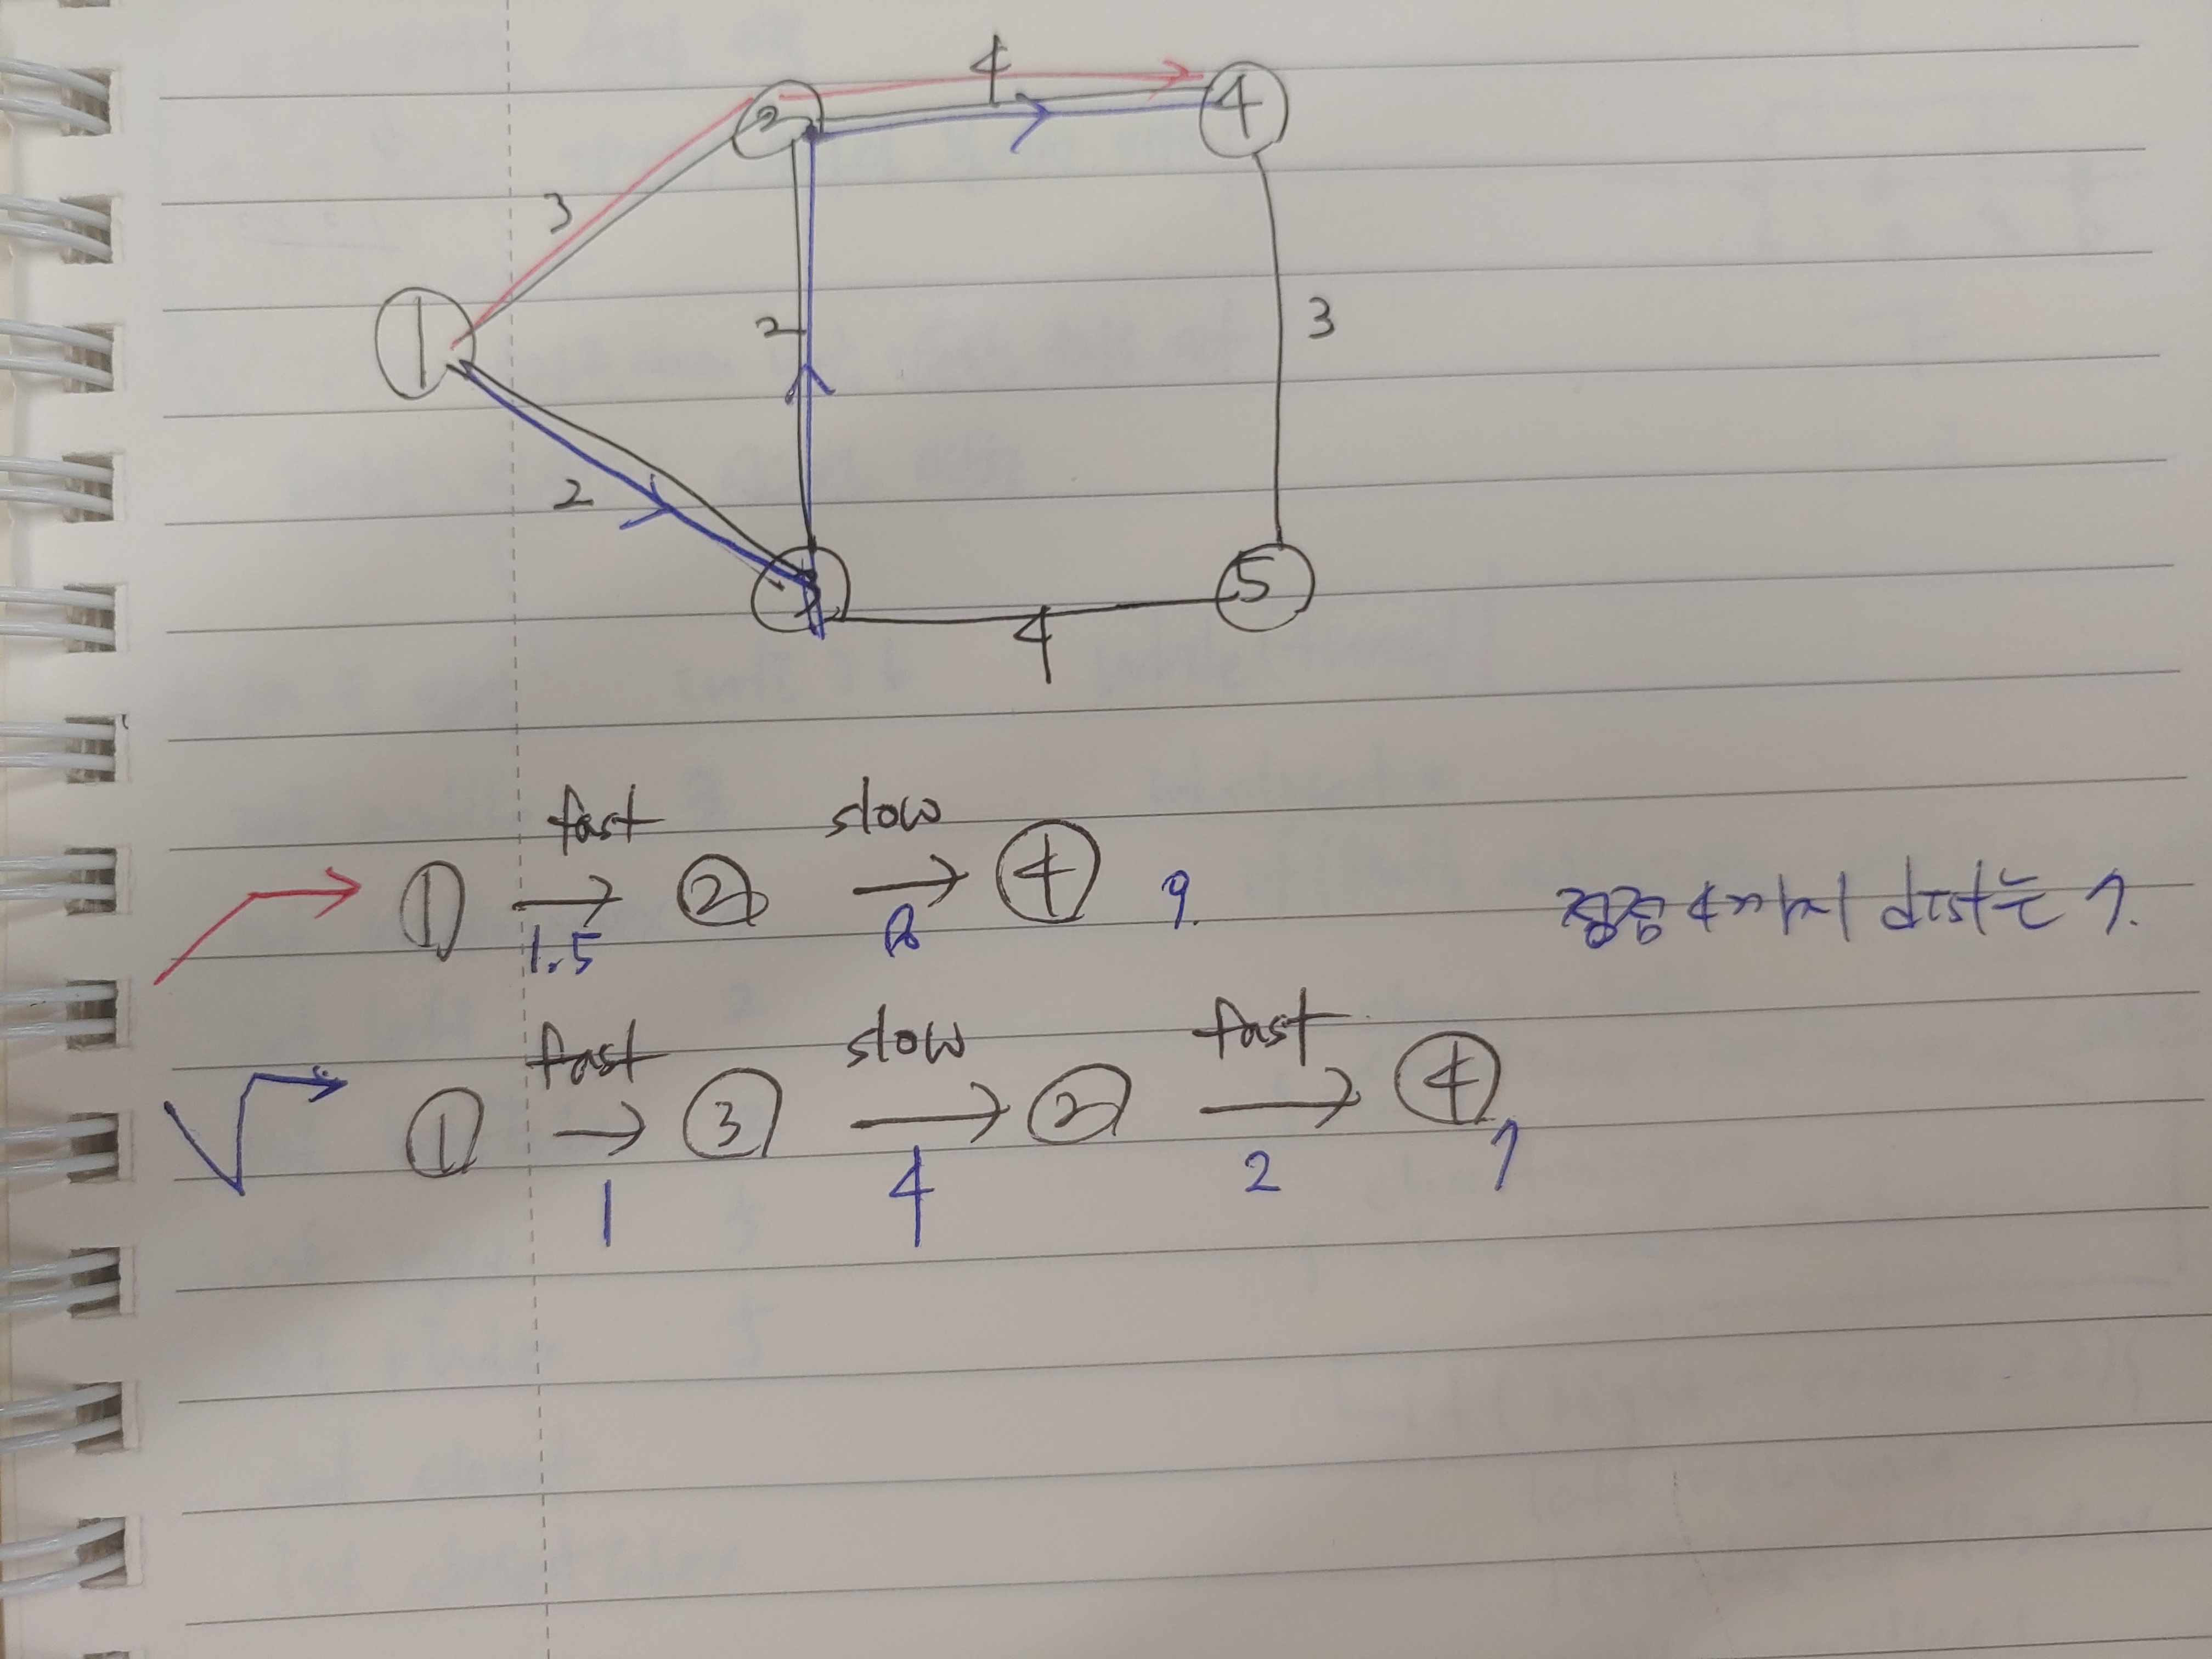 4
2
4
3
1
2
3
2
3
5
4
fast slow
1 → 2 → 4
1.5 8 9.
dist는 7.
fast slow fast
1 → 3 → 2 → 4
1 4 2 7